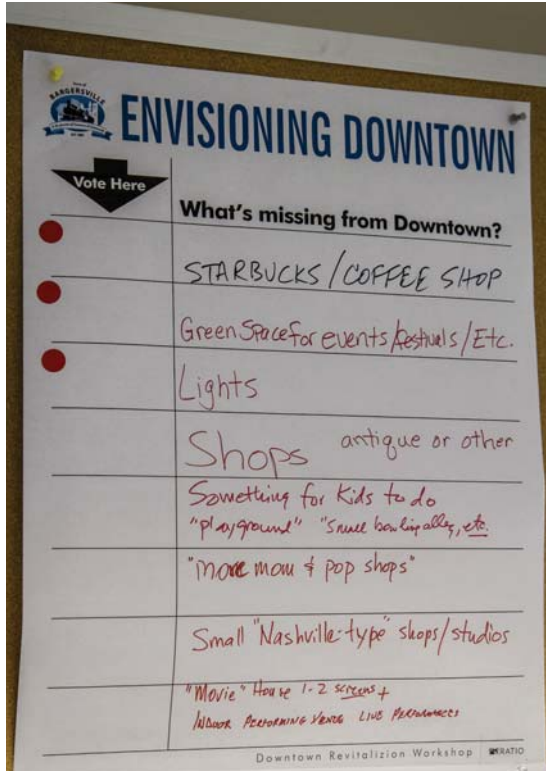 Town of
BARGERSVILLE
ENVISIONING DOWNTOWN
Vote Here
What's missing from Downtown?
STARBUCKS / COFFEE SHOP
Green Space for events / festivals / Etc.
Lights
Shops antique or other
Something for Kids to do
"playground" "Small bowling alley, etc.
"more mom & pop shops"
Small "Nashville-type" shops/studios
"Movie" House 1-2 screens +
INDOOR PERFORMING VENUE LIVE PERFORMANCES
Downtown Revitalizion Workshop RATIO